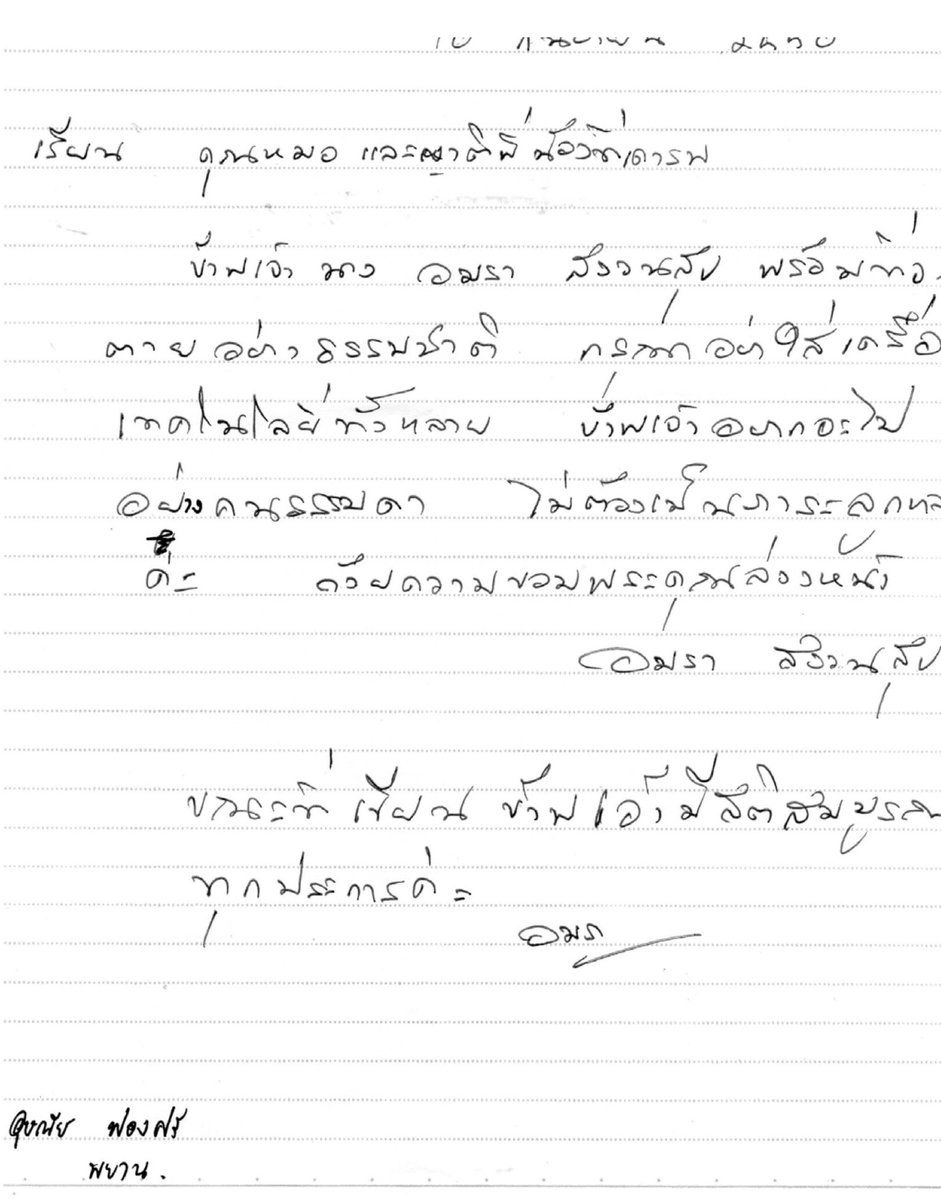 เรียน คุณหมอ และญาติพี่น้องที่เคารพ
ข้าพเจ้า นาง อมรา สงวนสุข พร้อมที่จะ
ตายอย่างธรรมชาติ กรุณาอย่าใส่เครื่อ
เทคโนโลยีทั้งหลาย ข้าพเจ้าอยากจะไป
อย่างคนธรรมดา ไม่ต้องเป็นภาระลูกหล
ค่ะ ด้วยความขอบพระคุณล่วงหน้า
อมรา สงวนสุข
ขณะที่เขียน ข้าพเจ้ามีสติสมบูรณ
ทุกประการค่ะ
อมรา
พยาน.